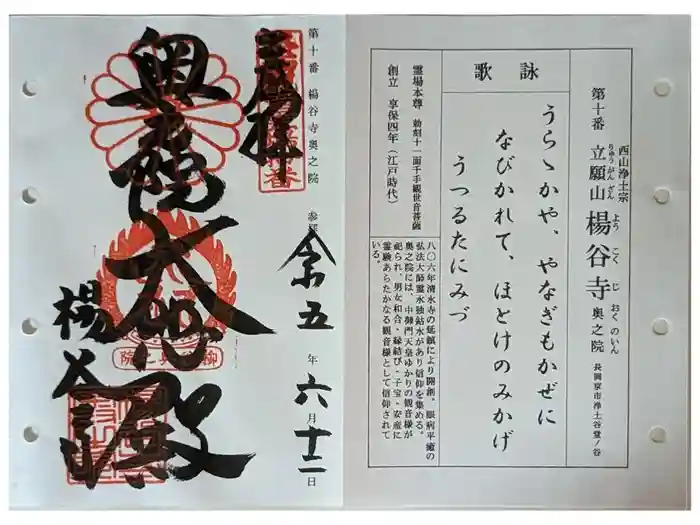 西山浄土宗
第十番 立願山 楊谷寺 奥之院 長岡京市浄土谷堂ノ谷
りゅうがんざん ようこくじ おくのいん
詠歌
うらゝかや、やなぎもかぜに
なびかれて、ほとけのみかげ
うつるたにみづ
霊場本尊 勅刻十一面千手観世音菩薩
創立 享保四年(江戸時代)
八〇六年清水寺の延鎮により開創。眼病平癒の
弘法大師霊水独鈷水があり信仰を集める。
奥之院には、中御門天皇ゆかりの観音様が
祀られ、男女和合・縁結び・子宝・安産に
霊験あらたかなる観音様として信仰されて
いる。
第十番 楊谷寺奥之院
奉拝
令五年六月十二日
大悲殿
楊谷山